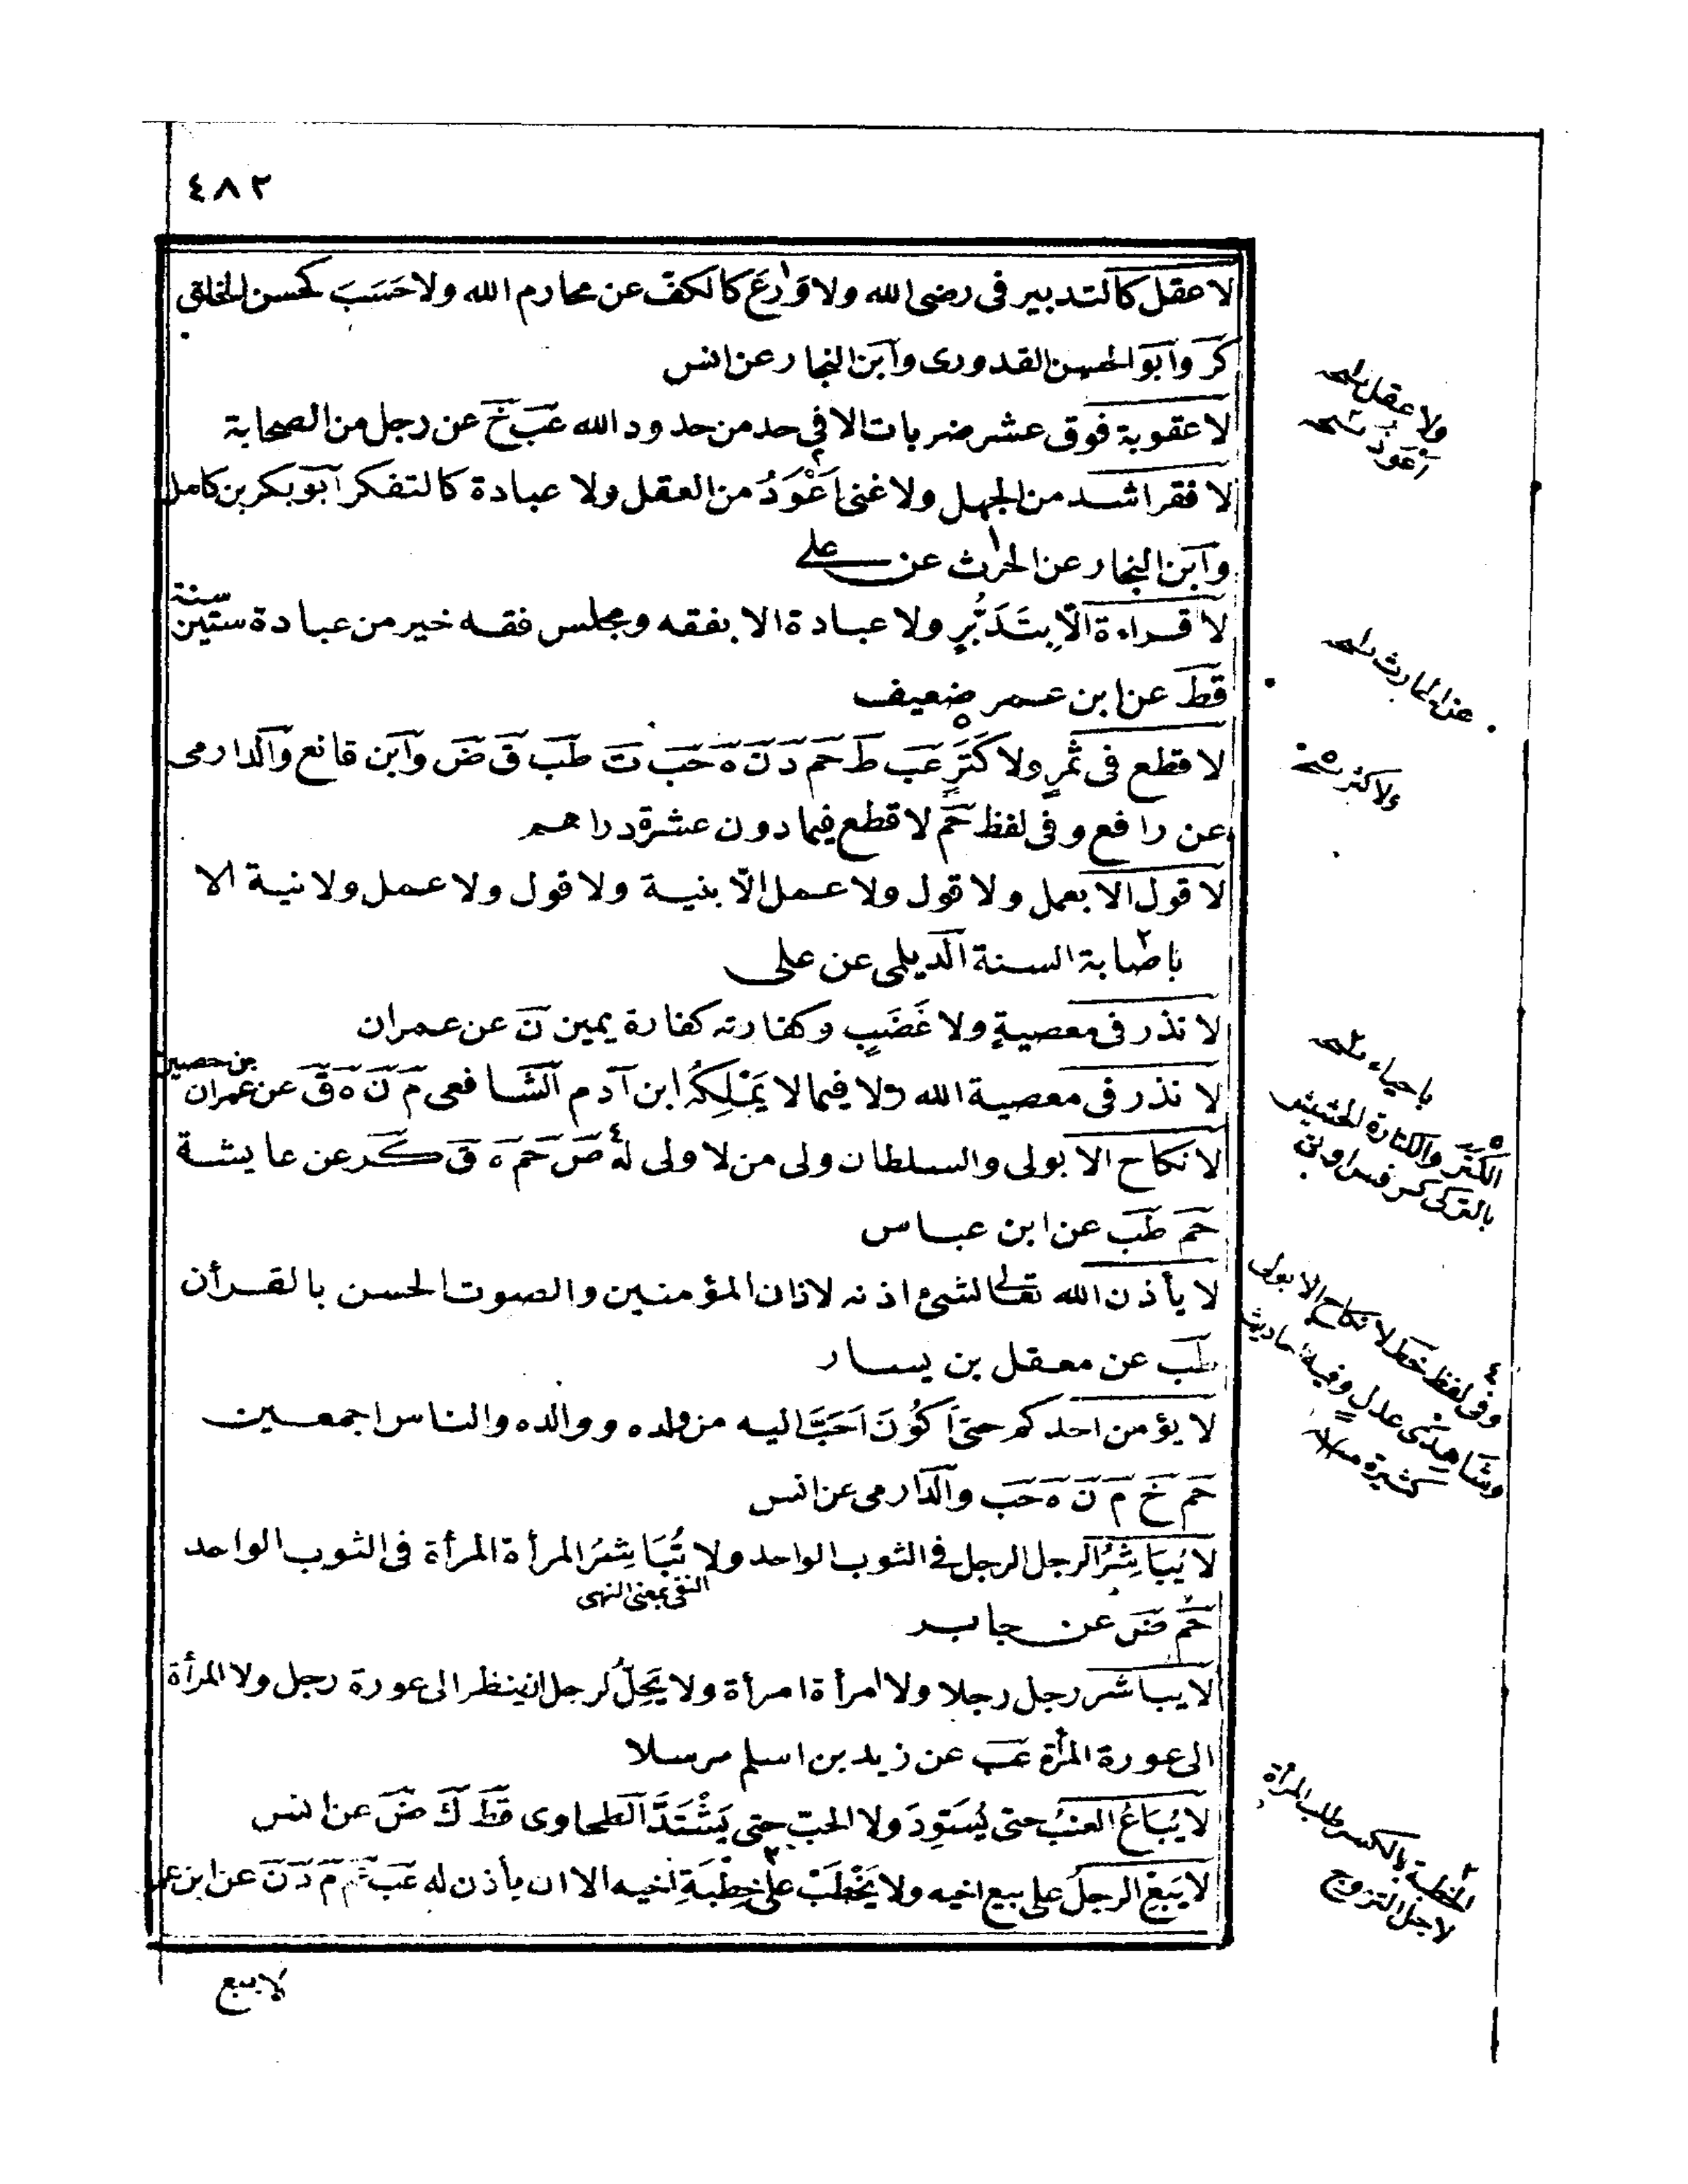 ٤٨٢
لا عقل كالتدبير فى رضى الله ولا وَرَعَ كالكف عن محارم الله ولا حَسَبَ كحسن الخلق
كر وابو الحسن القدورى وابن النجار عن انس
لا عقوبة فوق عشر ضربات الا فى حد من حدود الله عب خ عن رجل من الصحابة
لا فقر اشد من الجهل ولا غنى اَعْوَدُ من العقل ولا عبادة كالتفكر ابو بكر بن كامل
وابن النجار عن الحرث عن على
لا قراءة الّا بِتَدَبُّرٍ ولا عبادة الا بفقه ومجلس فقه خير من عبادة ستين سنة
قط عن ابن عمر ضعيف
لا قطع فى ثَمَرٍ ولا كَثَرٍ عب ط حم د ن ه حب ت طب ق ض وابن قانع والدارمى
عن رافع وفى لفظ حم لا قطع فيما دون عشرة دراهم
لا قول الا بعمل ولا قول ولا عمل الّا بنية ولا قول ولا عمل ولا نية الا
باصابة السنة الديلمى عن على
لا نذر فى معصيةٍ ولا غَضَبٍ وكفارته كفارة يمين ن عن عمران
لا نذر فى معصية الله ولا فيما لا يَمْلِكُهُ ابن آدم الشافعى م ن ه ق عن عمران بن حصين
لا نكاح الا بولى والسلطان ولى من لا ولى له ص حم ه ق كر عن عايشة
حم طب عن ابن عباس
لا يأذن الله تعالى لشئ اذنه لاذان المؤمنين والصوت الحسن بالقرأن
طب عن معقل بن يسار
لا يؤمن احدكم حتى اَكُونَ اَحَبَّ اليه من ولده ووالده والناس اجمعين
حم خ م ن ه حب والدارمى عن انس
لا يُبَاشِرُ الرجل الرجل فى الثوب الواحد ولا تُبَاشِرُ المرأة المرأة فى الثوب الواحد
النفى بمعنى النهى
حم ض عن جابر
لا يباشر رجل رجلا ولا امرأة امرأة ولا يَحِلُّ لرجل ان ينظر الى عورة رجل ولا المرأة
الى عورة المرأة عب عن زيد بن اسلم مرسلا
لا يُبَاعُ العنبُ حتى يُسَوِدَ ولا الحبّ حتى يَشْتَدَّ الطحاوى قط ك ض عن انس
لا يَبِعْ الرجلُ على بيع اخيه ولا يَخْطَبْ على خِطْبَةِ اخيه الا ان يأذن له عب حم م د ن عن ابن عمر
لا يبع
ولا عقل نسخه
اَعْوَذ نسخه
عن الحارث نسخه
ولا كثر نسخه
باحياء نسخه
الكَثَر والكثارة الحشيش
بالتركى كرفس اوتى
وفى لفظ خط لا نكاح الا بولى
وشَاهِدَىْ عدلٍ وفيه احاديث
كثيرة
الخطبة بالكسر طلب المرأة
لاجل التزوج